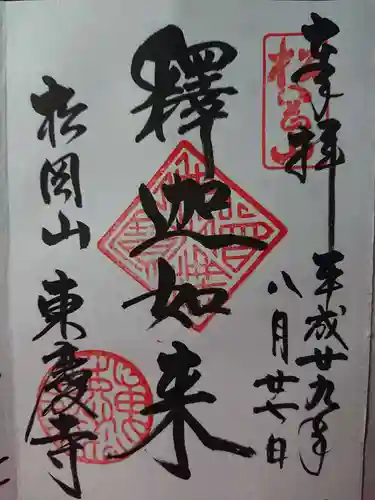 奉拝
平成廿九年
八月廿七日
松岡山
釋迦如来
松岡山
東慶寺